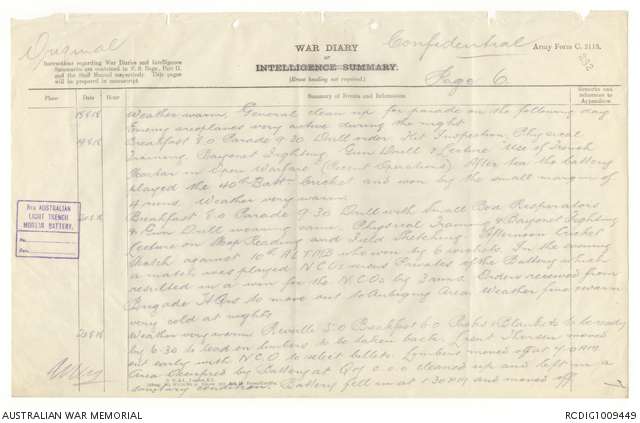 Original
WAR DIARY
or
INTELLIGENCE SUMMARY.
(Erase heading not required.)
Confidential
Army Form C. 2118.
Instructions regarding War Diaries and Intelligence
Summaries are contained in F.S. Regs., Part II.
and the Staff Manual respectively. Title pages
will be prepared in manuscript.
Page 6.
Place
Date
Hour
Summary of Events and Information
Remarks and
references to
Appendices
18.8.18 Weather warm, General clean up for parade on the following day
Enemy aeroplanes very active during the night.
19.8.18 Breakfast 8.0 Parade 9.30 Drill order. Kit Inspection, Physical
Training, Bayonet Fighting Gun Drill & Lecture "Use of Trench
Mortar in Open Warfare (Recent Operations). After tea the battery
played the 40th Battn Cricket and won by the small margin of
4 runs. Weather very warm.
20.8.18 Breakfast 8.0 Parade 9.30 Drill with Small Box Respirators
& Gun Drill wearing same. Physical Training & Bayonet Fighting
Lecture on Map Reading and Field Sketching. Afternoon Cricket
Match against 10th ALTMB who won by 6 wickets. In the evening
a match was played NCOs versus Privates of the Battery which
resulted in a win for the NCOs by 3 runs. Orders received from
Brigade H.Qrs to move out to Aubigny Area. Weather fine & warm
very cold at nights
21.8.18 Weather very warm. Reveille 5.0 Breakfast 6.0 Packs & Blankets to be ready
by 6.30 to load on limbers to be taken back. Lieut moved
out early with N.C.O to select billets. Limbers moved off at 7.0 AM
Area Occupied by Battery at cleaned up and left in a
sanitary condition. Battery fell in at 1.30 PM and moved off
AUSTRALIAN
LIGHT TRENCH
MORTAR BATTERY.
No.
Date
AUSTRALIAN WAR MEMORIAL
RCDIG1009449